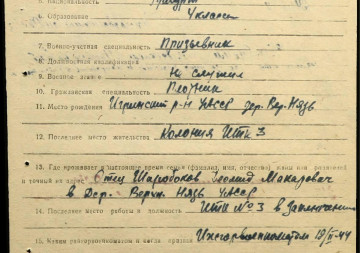 6. Образование 4 класса
7. Военно-учетная специальность Призывник
8. Должностная квалификация
9. Военное звание Не служил
10. Гражданская специальность Плотник
11. Место рождения Игринский р-н УАССР дер. Вер. Нязь
12. Последнее место жительства Колония ИТК 3
13. Где проживает в настоящее время семья (фамилия, имя, отчество) жены или родителей
и точный их адрес Отец Широбоков Леонид Макарович
в Дер. Верхн. Нязь УАССР
14. Последнее место работы и должность ИТК №3 в Заключении
15. Каким райгорвоенкоматом и когда призван Ижгорвоенкоматом 19/II-44